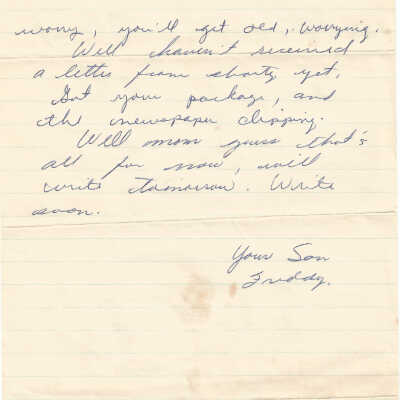 worry, you'll get old, worrying.
Well haven't received
a letter from shorty yet,
Got your package, and
the newspaper clipping.
Well mom guess that's
all for now, will
write tomorrow. Write
soon.
Your Son
Freddy.